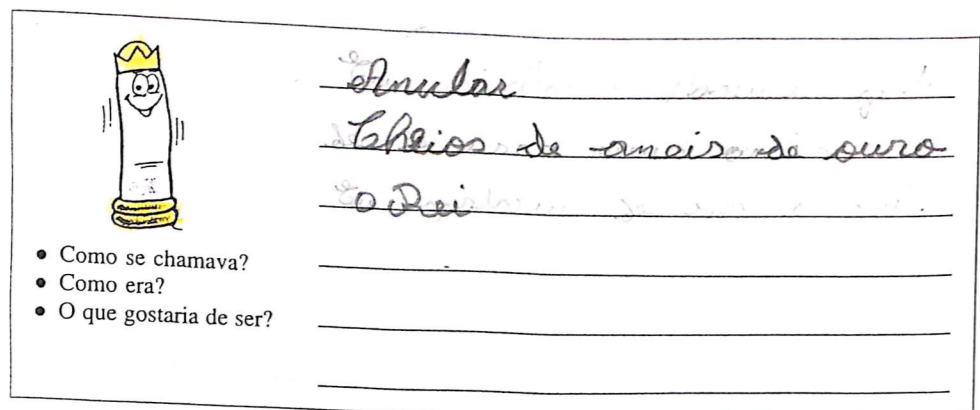 Anular
Cheios de aneis de ouro
o Rei
• Como se chamava?
• Como era?
• O que gostaria de ser?